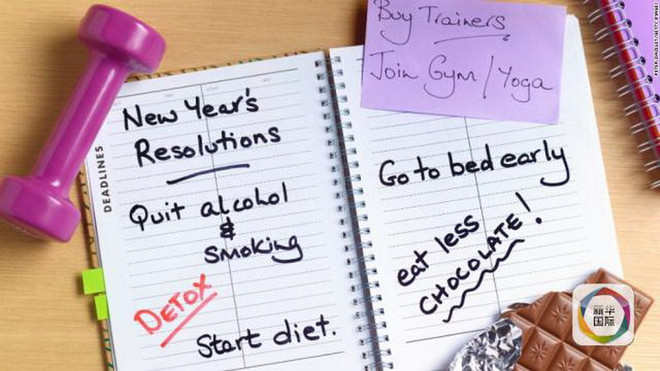 New Year's
Resolutions
DEADLINES
Quit alcohol
&
smoking
DETOX
Start diet.
Buy Trainers
Join Gym / Yoga
Go to bed early
eat less
CHOCOLATE!
新华
国际